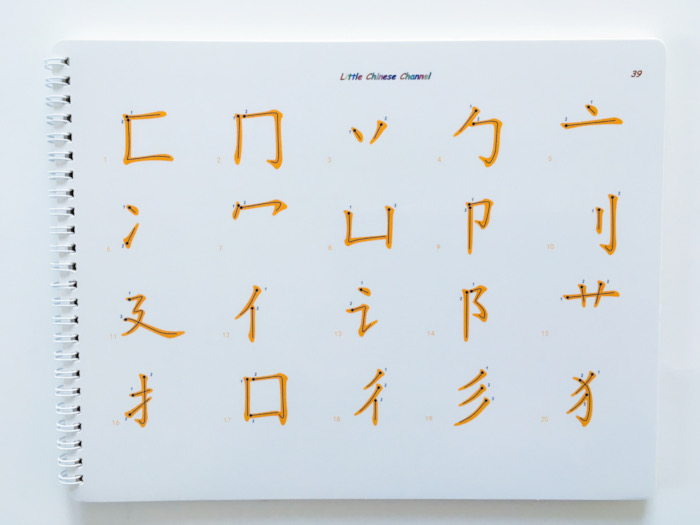 Little Chinese Channel 39
1 匚 2 冂 3 丷 4 勹 5 亠
6 冫 7 冖 8 凵 9 卩 10 刂
11 廴 12 亻 13 讠 14 阝 15 艹
16 扌 17 口 18 彳 19 彡 20 犭